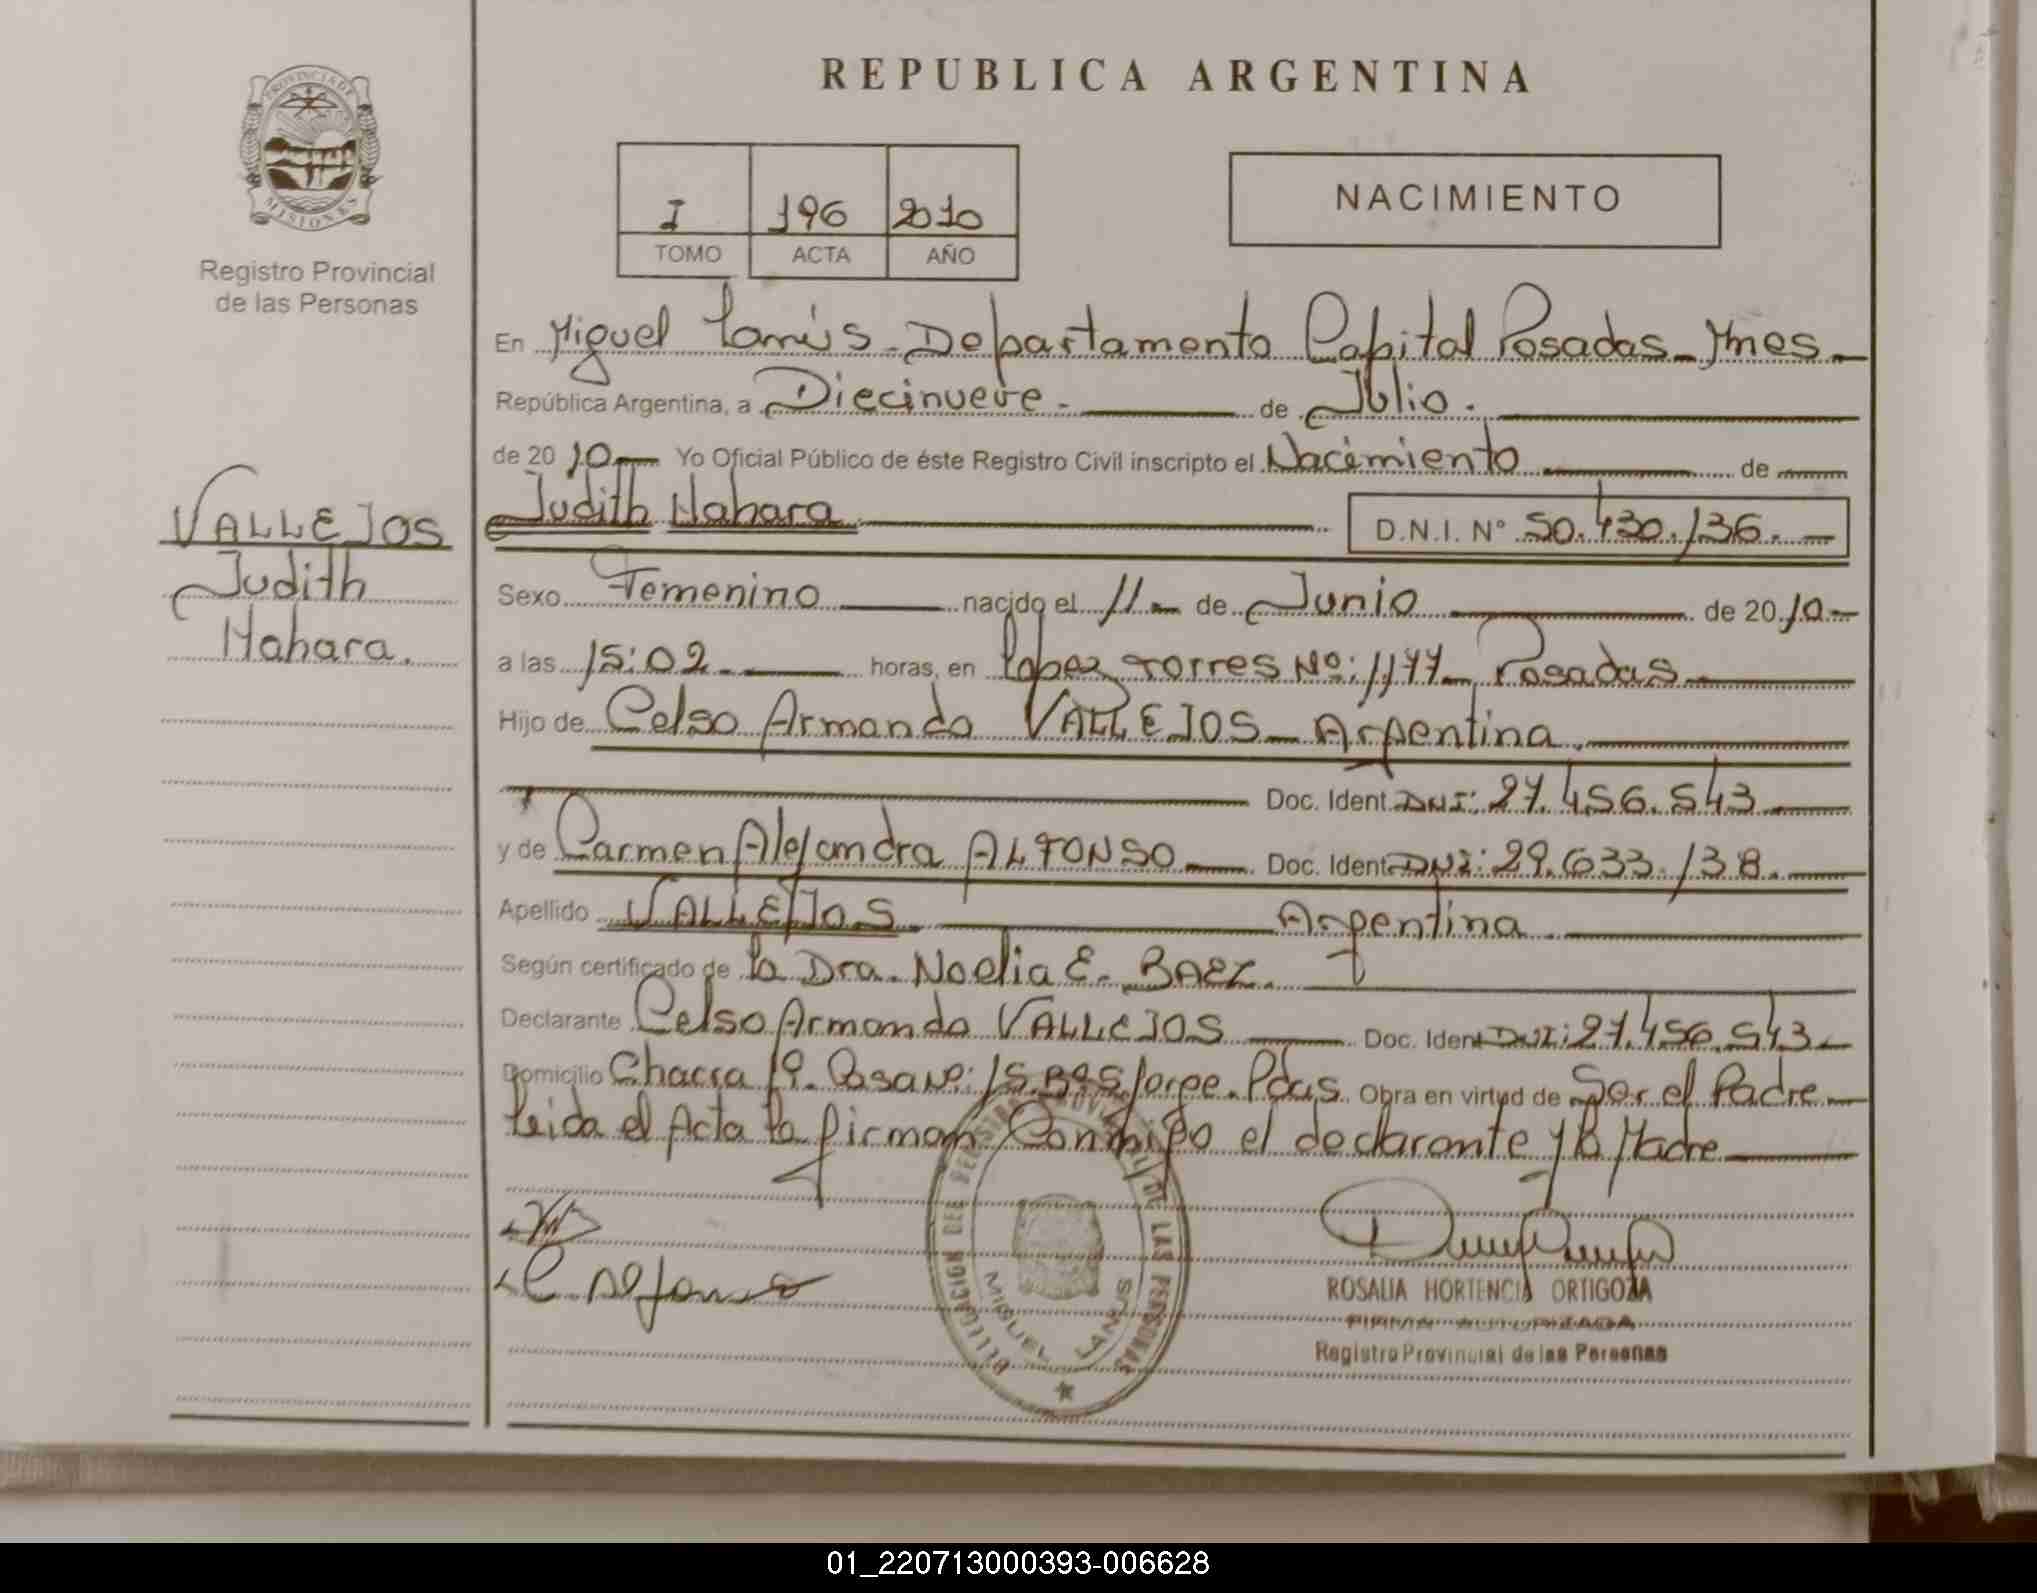 PROVINCIA DE
MISIONES
Registro Provincial
de las Personas
VALLEJOS
Judith
Nahara.
REPUBLICA ARGENTINA
I 196 2010
TOMO ACTA AÑO
NACIMIENTO
En Miguel Lanús - Departamento Capital Posadas - Mnes -
República Argentina, a Diecinueve - de Julio.
de 2010 - Yo Oficial Público de éste Registro Civil inscripto el Nacimiento de
Judith Nahara D.N.I. Nº 50.430.136. -
Sexo Femenino nacido el 11 - de Junio de 2010 -
a las 15:02 - horas, en López Torres Nº: 1177 - Posadas
Hijo de Celso Armando VALLEJOS - Argentina.
Doc. Ident. DNI: 27.456.543
y de Carmen Alejandra ALFONSO Doc. Ident. DNI: 29.633.138.
Apellido VALLEJOS Argentina
Según certificado de la Dra. Noelia E. BAEZ.
Declarante Celso Armando VALLEJOS Doc. Ident DNI: 27.456.543 -
Domicilio Chacra 19. Casa Nº: 15. Bº S/Jorge. Pdas. Obra en virtud de Ser el Padre
leida el Acta la firman Conmigo el declarante y la Madre
C. Alfonso
DELEGACION DEL REGISTRO PROVINCIAL DE LAS PERSONAS
MIGUEL LANUS
ROSALIA HORTENCIA ORTIGOZA
FIRMA AUTORIZADA
Registro Provincial de las Personas
01_220713000393-006628